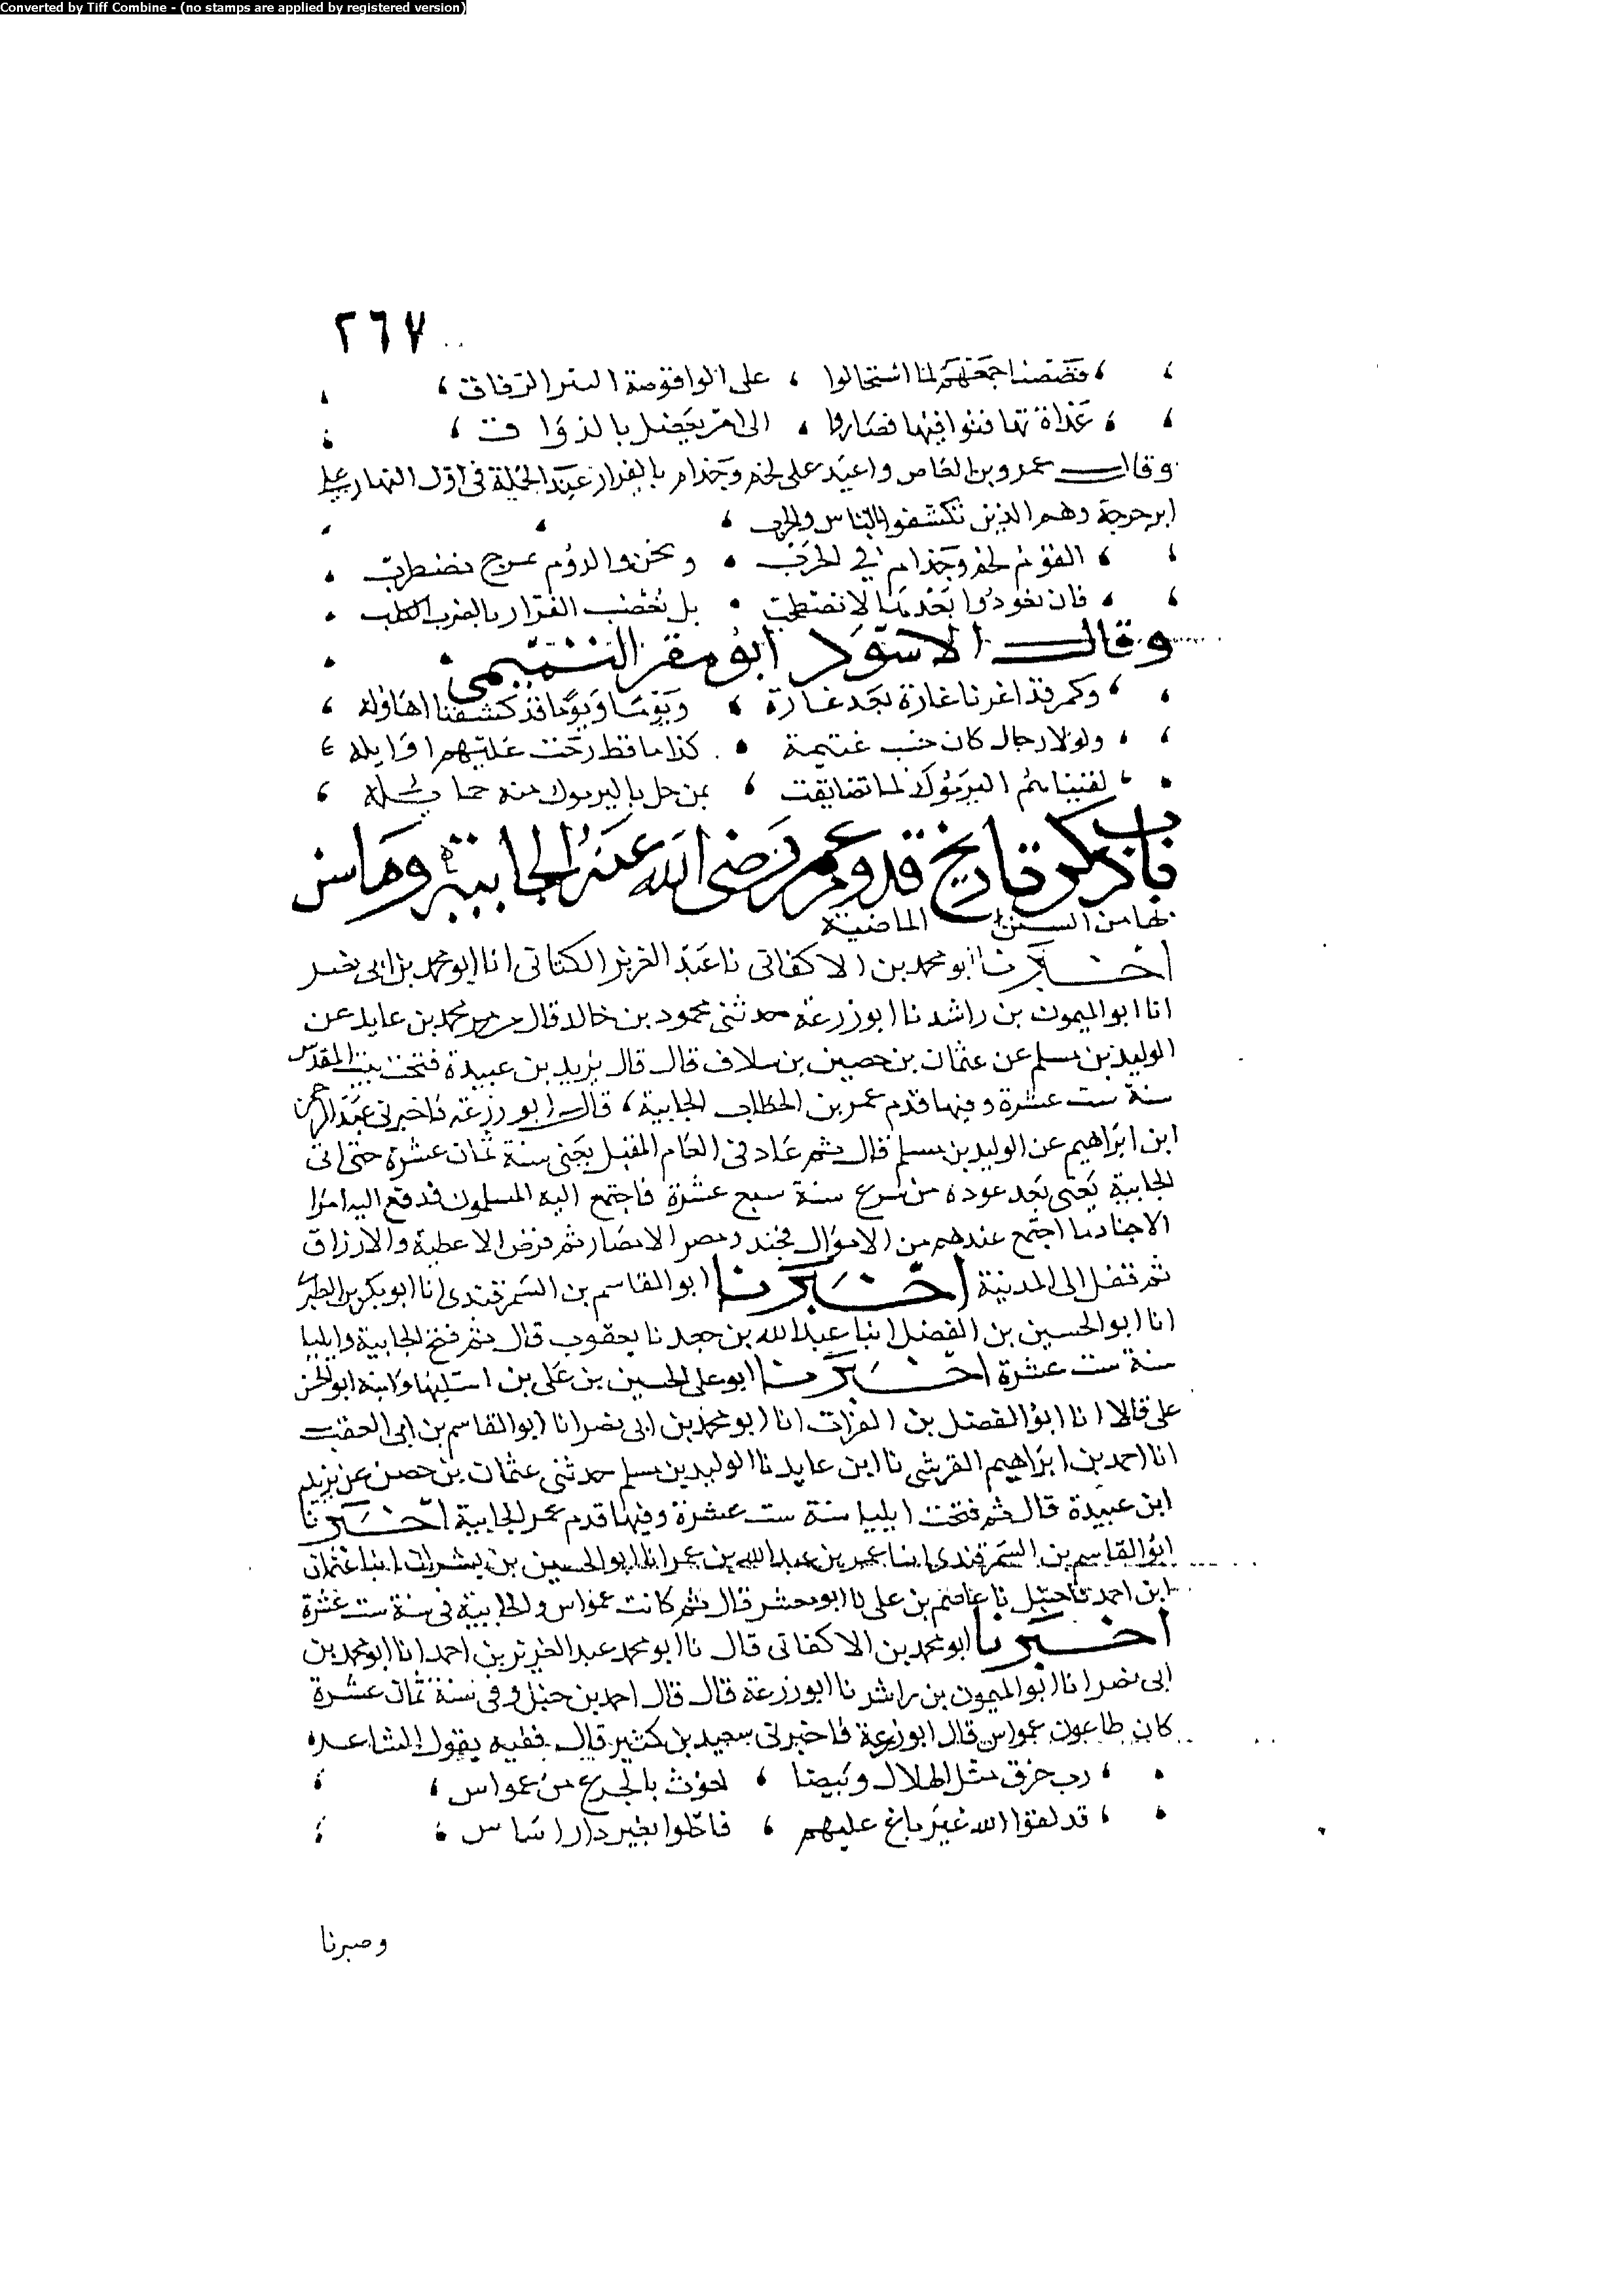 Converted by Tiff Combine - (no stamps are applied by registered version)
٢٦٧
فضضنا جمعهم لما استحالوا ، على الواقوصة البتر الرقاق ،
غداة تهافتوا فيها فصاروا ، الى امر يعضل بالذواق ،
وقال عمرو بن العاص واعيد على لخم وجذام بالفرار عند الحملة في اول النهار على
ابن حرجة وهم الذين تكشفوا بالناس والحرب
القوم لخم وجذام في الحرب ، ونحن والروم بمرج نضطرب
فان يعودوا بعدها لا نصطحب ، بل نعصب الفرار بالضرب الكلب
وقال الاسود ابو مقرر التميمي
وكم قد اغرنا غارة بعد غارة ، ويوما ويوما قد كشفنا اهاوله
ولولا رجال كان حشب غنيمة ، كذا ماقط رخت عليهم اوايله
لقيناهم اليرموك لما تضايقت ، بمن حل باليرموك منه حمايله
باب ذكر تاريخ قدوم عمر رضى الله عنه الجابية وما سن
بها من السنن الماضية
اخبرنا ابو محمد بن الاكفاني نا عبد العزيز الكتاني انا ابو محمد بن ابي نصر
انا ابو الميمون بن راشد نا ابو زرعة حدثني محمود بن خالد قال محمد بن عايد عن
الوليد بن مسلم عن عثمان بن حصين بن سلاف قال قال يزيد بن عبيدة فتحت بيت المقدس
سنة ست عشرة وفيها قدم عمر بن الخطاب الجابية ، قال ابو زرعة فاخبرني عبد الرحمن
ابن ابراهيم عن الوليد بن مسلم قال ثم عاد في العام المقبل يعني سنة ثمان عشرة حتى اتى
الجابية يعني بعد عوده من سرع سنة سبع عشرة فاجتمع اليه المسلمون فدفع اليه امرا
الاجناد ما اجتمع عندهم من الاموال فجند ومصر الامصار ثم فرض الاعطية والارزاق
ثم قفل الى المدينة اخبرنا ابو القاسم بن السمرقندي انا ابو بكر بن الطبري
انا ابو الحسين بن الفضل انبا عبد الله بن جعفر نا يعقوب قال ثم فتح الجابية وايليا
سنة ست عشرة اخبرنا ابو على الحسين بن على بن اشليها وابنه ابو الحسن
على قالا انا ابو الفضل بن الفرات انا ابو محمد بن ابي نصر انا ابو القاسم بن ابي العقب
انا احمد بن ابراهيم القرشي نا ابن عايد نا الوليد بن مسلم حدثني عثمان بن حصن عن يزيد
ابن عبيدة قال ثم فتحت ايليا سنة ست عشرة وفيها قدم عمر الجابية اخبرنا
ابو القاسم بن السمرقندي انبا عمر بن عبد الله بن عمر انا ابو الحسين بن بشران انبا عثمان
ابن احمد نا حنبل نا عاصم بن على نا ابو معشر قال ثم كانت عمواس والجابية في سنة ست عشرة
اخبرنا ابو محمد بن الاكفاني قال نا ابو محمد عبد العزيز بن احمد انا ابو محمد بن
ابي نصر انا ابو الميمون بن راشد نا ابو زرعة قال قال احمد بن حنبل وفي سنة ثمان عشرة
كان طاعون عمواس قال ابو زرعة فاخبرني سعيد بن كثير قال ففيه يقول الشاعر
رب خرق مثل الهلال وبيضا ، لعوث بالجزع من عمواس ،
قد لقوا الله غير باغ عليهم ، فاحلوا بغير دار اساس ،
وصبرنا